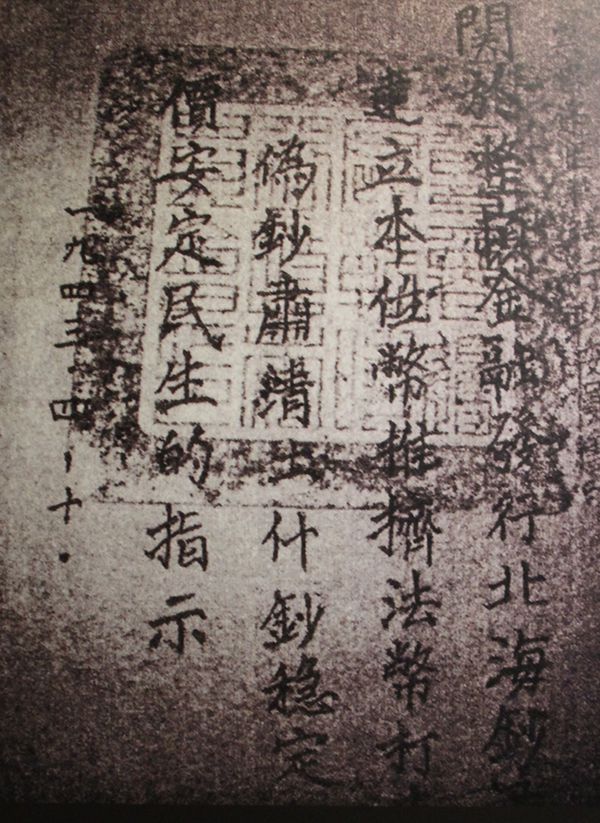 関於整頓金融發行北海鈔
建立本位幣推擠法幣打
偽鈔肅清土什鈔稳定
價安定民生的指示
一九四三·四·十·